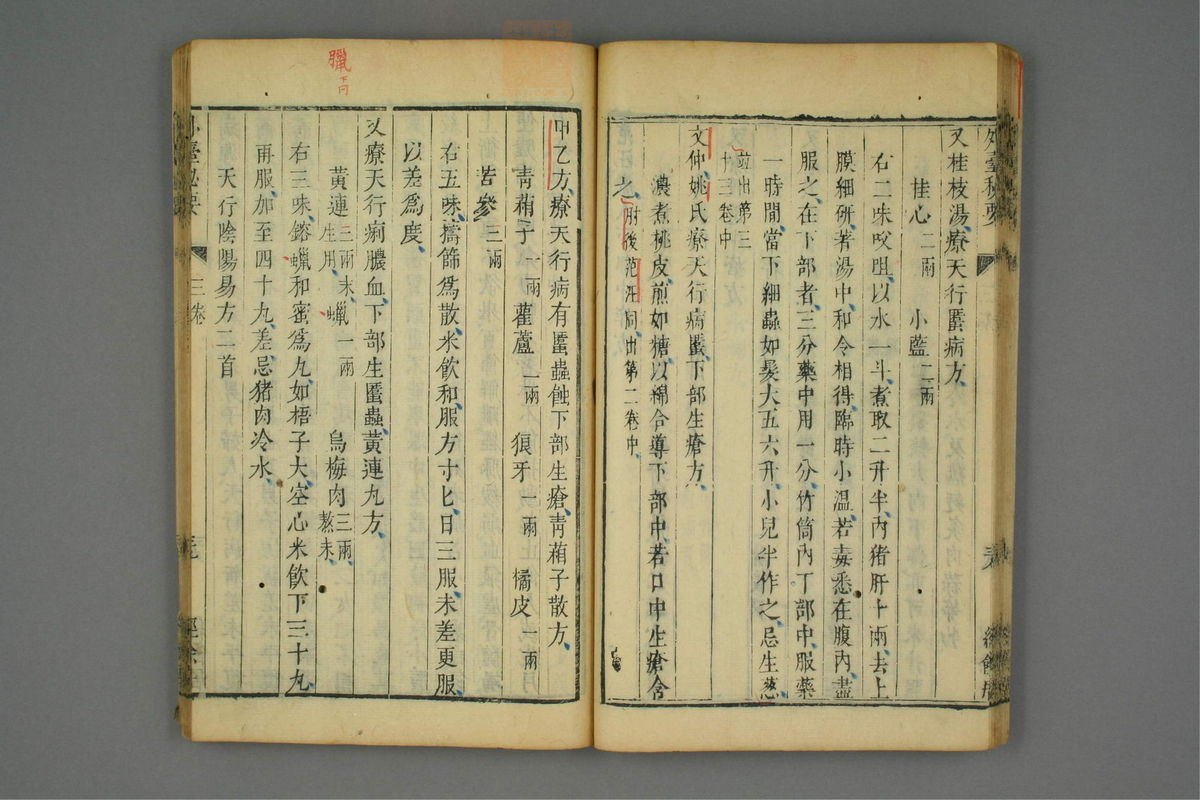 外臺秘要
又桂枝湯療天行䘌病方
桂心二兩 小藍二兩
右二味㕮咀以水一斗煮取二升半內猪肝十兩去上
膜細研著湯中和令相得臨時小溫若毒悉在腹內盡
服之在下部者三分藥中用一分竹筒內下部中服藥
一時間當下細蟲如髮大五六升小兒半作之忌生葱
並出第三
十三卷中
文仲姚氏療天行病䘌下部生瘡方
濃煮桃皮煎如糖以綿合導下部中若口中生瘡含
之肘後范汪同出第二卷中
甲乙方療天行病有䘌蟲蝕下部生瘡青葙子散方
青葙子一兩 雚蘆二兩 狼牙一兩 橘皮一兩
苦參三兩
右五味擣篩爲散米飲和服方寸匕日三服未差更服
以差爲度
又療天行痢膿血下部生䘌蟲黃連丸方
黃連三兩末生用 蠟一兩 烏梅肉三兩熬末
右三味鎔蠟和蜜爲丸如梧子大空心米飲下三十丸
再服加至四十丸差忌猪肉冷水
天行陰陽易方二首
外臺秘要
三卷
經餘居
臘
下同